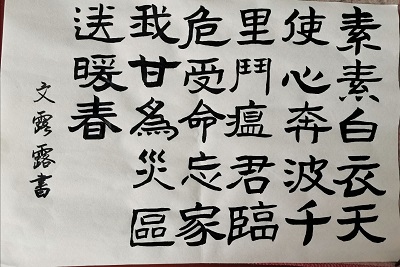 素素白衣天
使心奔波千
里鬥瘟君臨
危受命忘家
我甘為災區
送暖春
文露露書